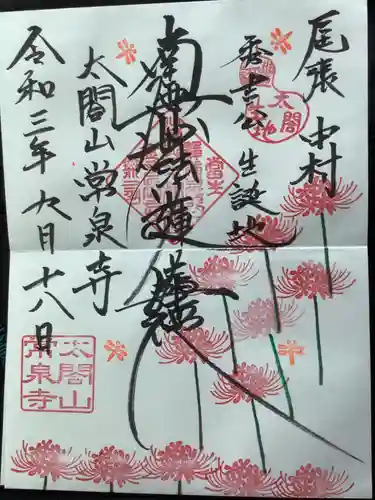 尾張 中村
秀吉公 生誕地
南無妙法蓮華經
太閤山 常泉寺
令和三年 九月十八日
太閤
山
常泉寺